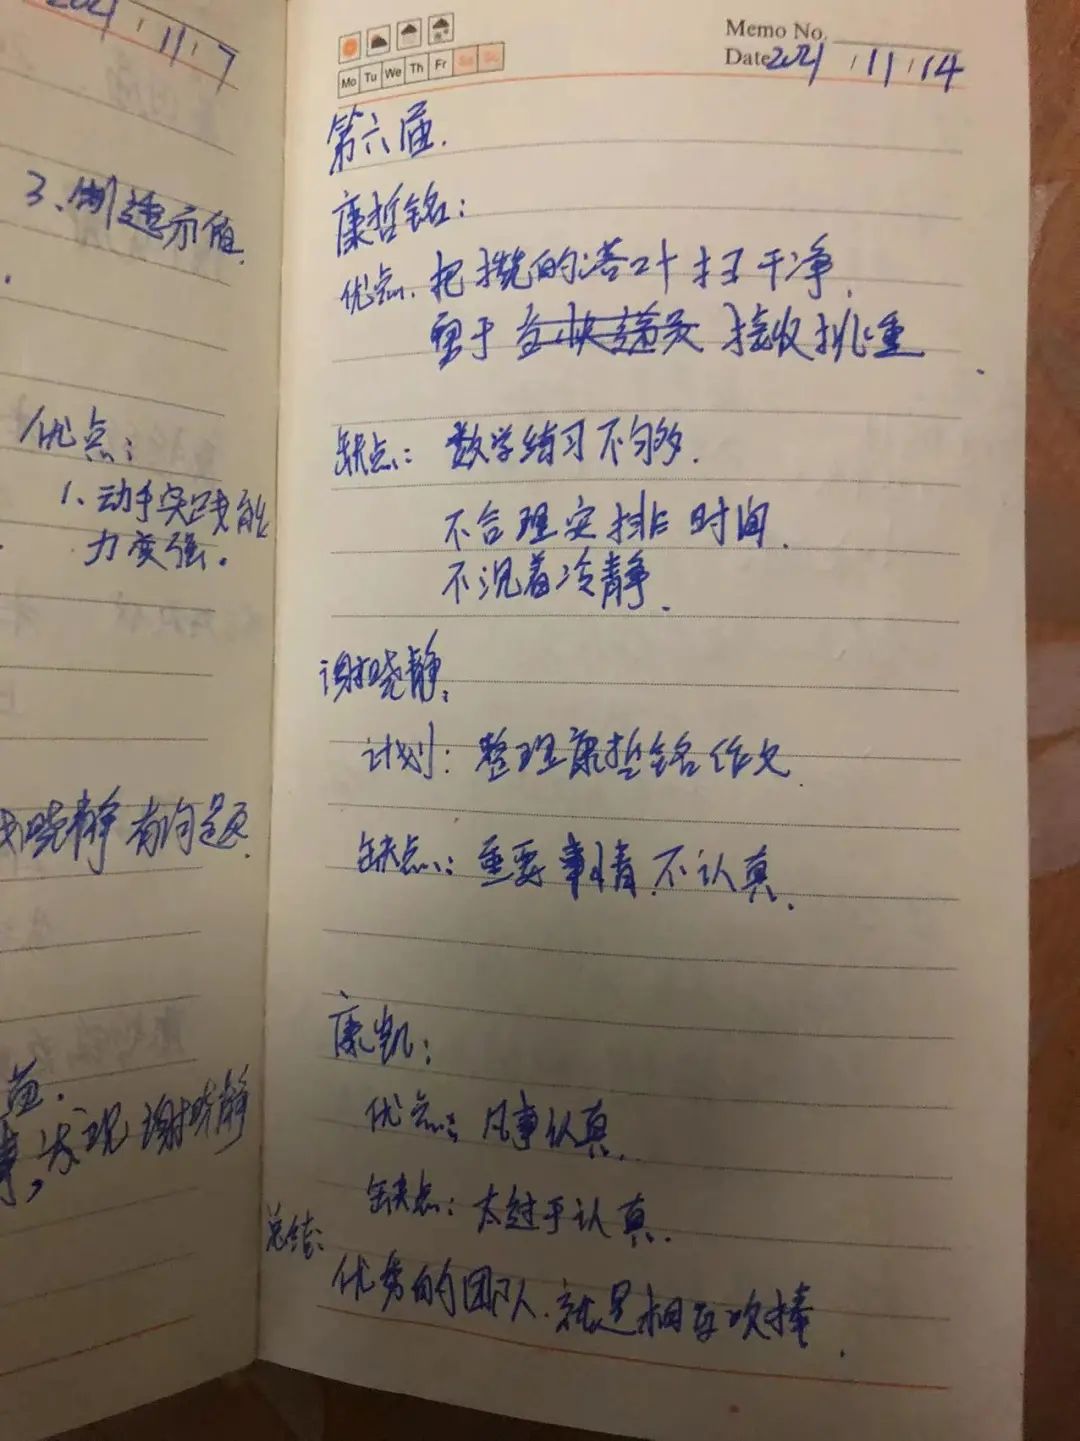 2021 / 11 / 7
3、制造示值
优点：
1、动手实践能
力变强。
晓静有问题
，发现谢晓静
Mo Tu We Th Fr Sa Su
Memo No.
Date 2021 / 11 / 14
第六届.
康哲铭：
优点. 把揽的落叶扫干净.
敢于 接收挑重
缺点：数学练习不够多.
不合理安排时间.
不沉着冷静.
谢晓静：
计划：整理康哲铭作文.
缺点：重要事情不认真.
康凯：
优点：凡事认真.
缺点：太过于认真.
总结：
优秀的团队.就是相互吹捧.